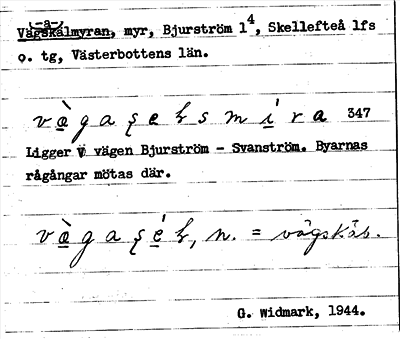 (-a-)
Vägskälmyran, myr, Bjurström 1⁴, Skellefteå lfs
o. tg, Västerbottens län.
347
Ligger V vägen Bjurström - Svanström. Byarnas
rågångar mötas där.
n. = vägskäl.
G. Widmark, 1944.